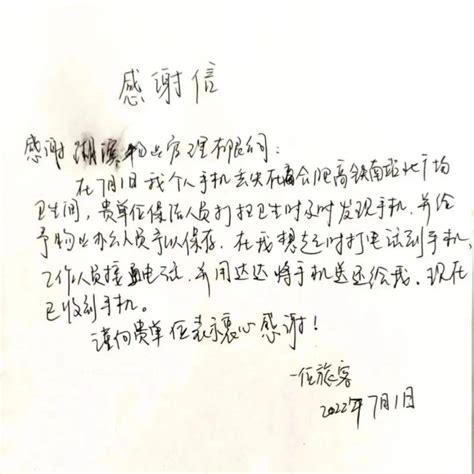 感谢信
感谢湖滨物业管理有限公司:
在7月1日我个人手机丢失在合肥高铁南站北广场
卫生间,贵单位保洁人员打扫卫生时及时发现手机,并给
予物业办公人员予以保存,在我想起时打电话到手机,
工作人员接通电话,并用达达将手机送还给我,现在
已收到手机。
谨向贵单位表示衷心感谢!
一位旅客
2022年7月1日